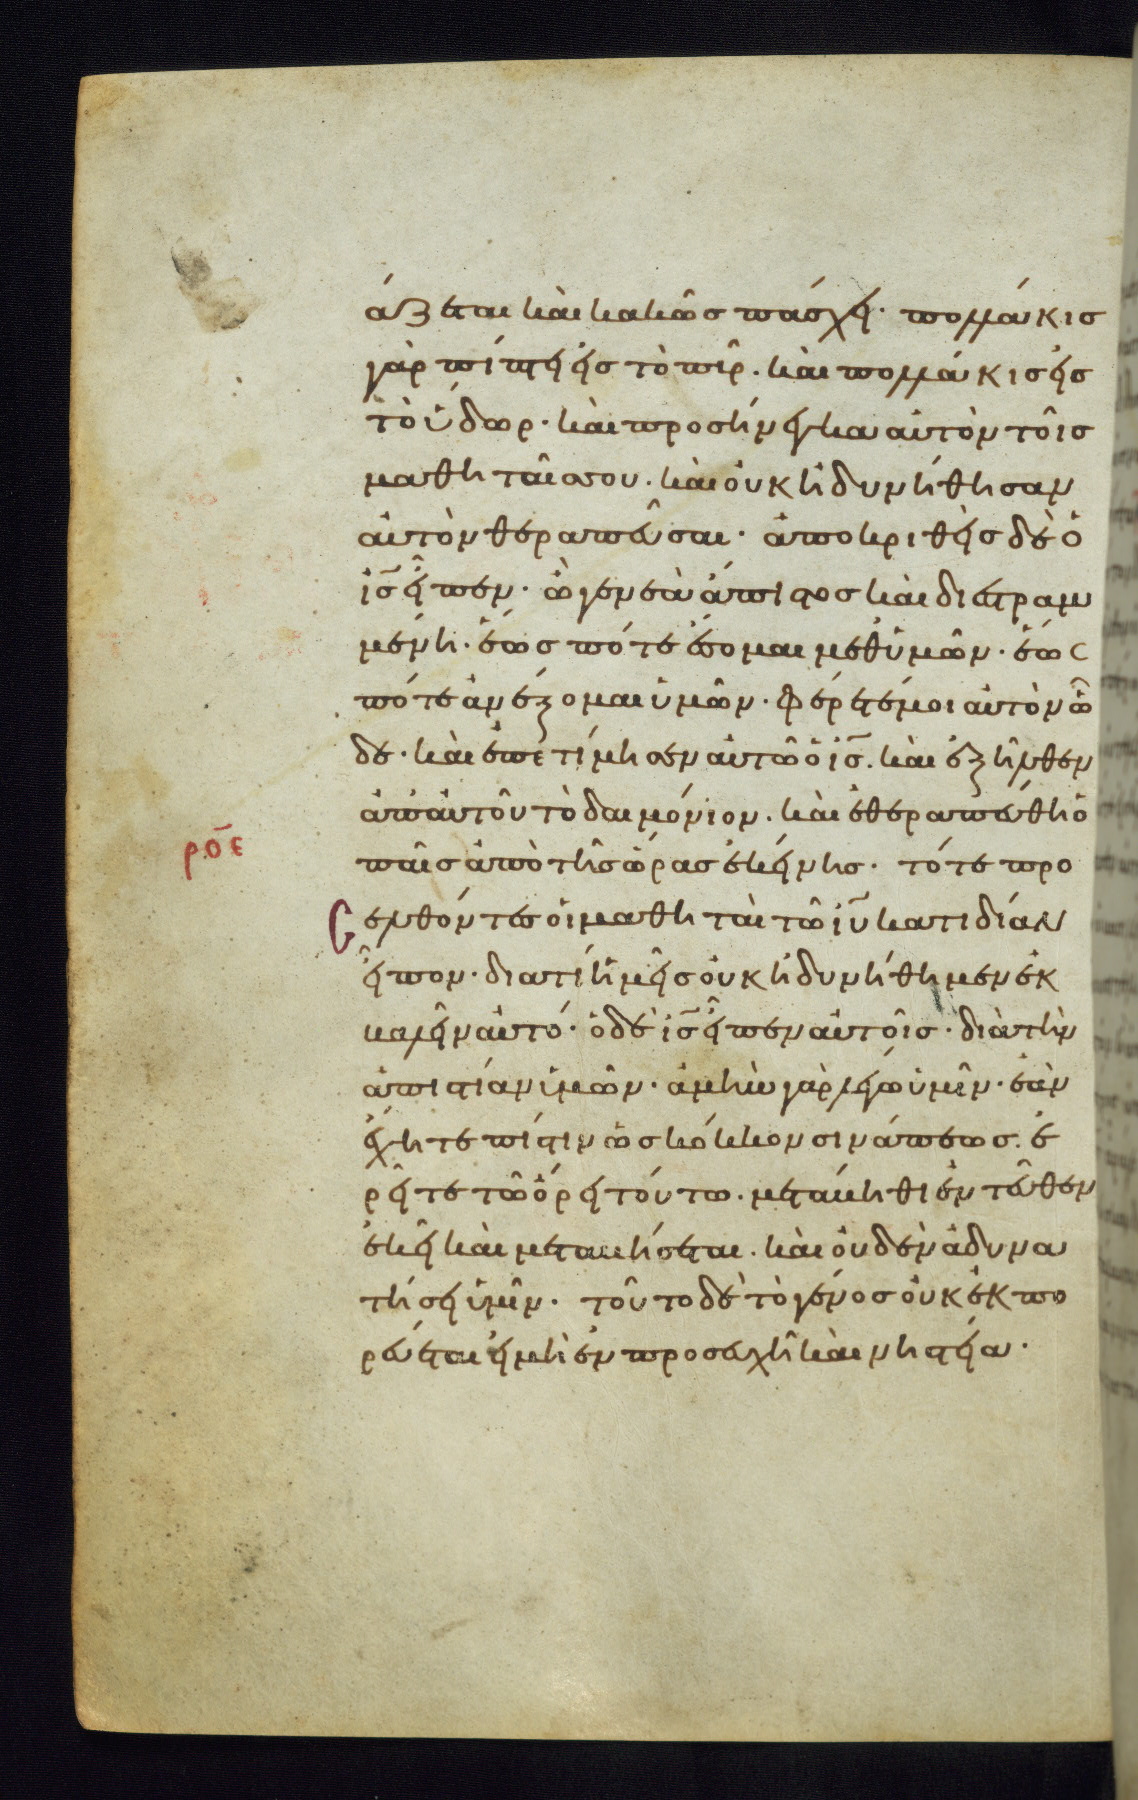 άζεται καὶ κακῶσ πάσχει· πολλάκισ
γὰρ πίπτει εἰσ τὸ πῦρ. καὶ πολλάκισ εἰσ
τὸ ὕδωρ· καὶ προσήνεγκα αὐτὸν τοῖσ
μαθηταῖσ σου. καὶ οὐκ ἠδυνήθησαν
αὐτὸν θεραπεῦσαι· ἀποκριθεὶσ δὲ ὁ
ἰσ̅ εἶπεν· ὦ γενεὰ ἄπιστοσ καὶ διεστραμ
μένη· ἕωσ πότε ἔσομαι μεθ' ὑμῶν· ἕωσ
πότε ἀνέξομαι ὑμῶν· φέρετέ μοι αὐτὸν ὧ
δε· καὶ ἐπετίμησεν αὐτῶ ὁ ἰσ̅. καὶ ἐξῆλθεν
ἀπ' αὐτοῦ τὸ δαιμόνιον. καὶ ἐθεραπεύθη ὁ
ροε παῖσ ἀπὸ τῆσ ὥρασ ἐκείνησ· τότε προ
σελθόντεσ οἱ μαθηταὶ τῶ ἰυ̅ κατιδίαν
εἶπον· διατί ἡμεῖσ οὐκ ἠδυνήθημεν ἐκ
βαλεῖν αὐτό· ὁ δὲ ἰσ̅ εἶπεν αὐτοῖσ· διὰ τὴν
ἀπιστίαν ὑμῶν· ἀμὴν γὰρ λέγω ὑμῖν· ἐὰν
ἔχητε πίστιν ὡσ κόκκον σινάπεωσ. ἐ
ρεῖτε τῶ ὄρει τούτω. μετάβηθι ἐντεῦθεν
ἐκεῖ καὶ μεταβήσεται. καὶ οὐδὲν ἀδυνα
τήσει ὑμῖν· τοῦτο δὲ τὸ γένοσ οὐκ ἐκπο
ρεύεται εἰ μὴ ἐν προσευχῆ καὶ νηστεία·